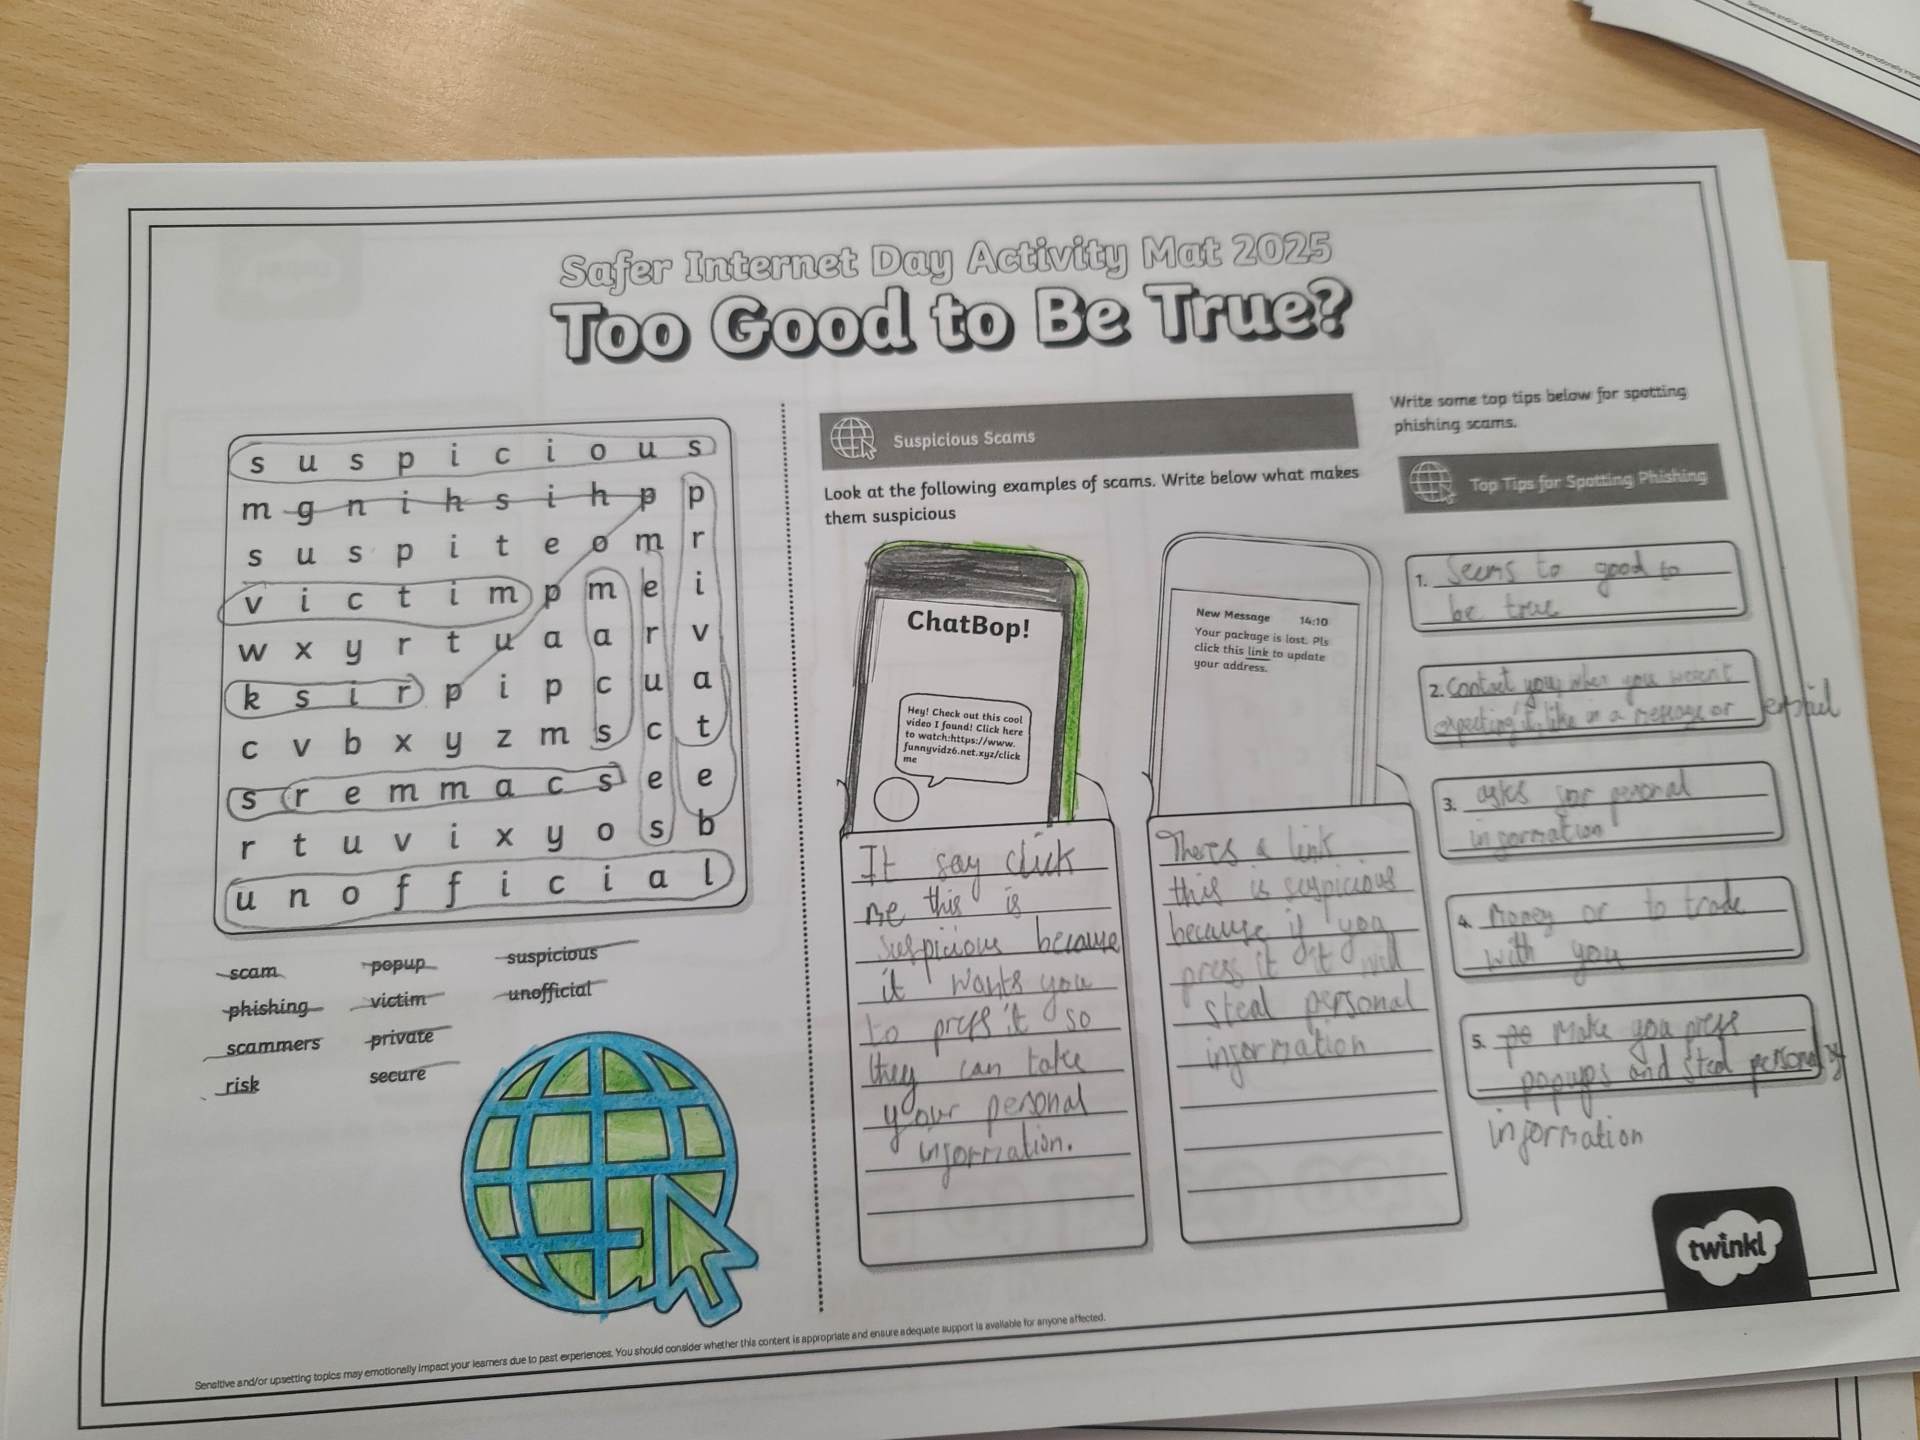 Safer Internet Day Activity Mat 2025
Too Good to Be True?
s u s p i c i o u s
m g n i h s i h p p
s u s p i t e o m r
v i c t i m p m e i
w x y r t u a a r v
k s i r p i p c u a
c v b x y z m s c t
s r e m m a c s e e
r t u v i x y o s b
u n o f f i c i a l
scam popup suspicious
phishing victim unofficial
scammers private
risk secure
Suspicious Scams
Look at the following examples of scams. Write below what makes
them suspicious
ChatBop!
Hey! Check out this cool
video I found! Click here
to watch:https://www.
funnyvidz6.net.xyz/click
me
It say click
me this is
suspicious because
it wants you
to press it so
they can take
your personal
information.
New Message 14:10
Your package is lost. Pls
click this link to update
your address.
Theres a link
this is suspicious
because if you
press it it will
steal personal
information
Write some top tips below for spotting
phishing scams.
Top Tips for Spotting Phishing
1. Seems to good to
be true
2. Contact you when you werent
expecting it, like in a message or
3. asks for personal
information
4. Money or to trade
with you
5. Make you press
popups and steal personal
information
twinkl
Sensitive and/or upsetting topics may emotionally impact your learners due to past experiences. You should consider whether this content is appropriate and ensure adequate support is available for anyone affected.